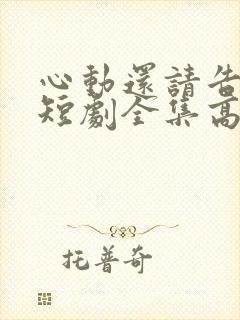 心動還請告
短劇全集高
托普奇